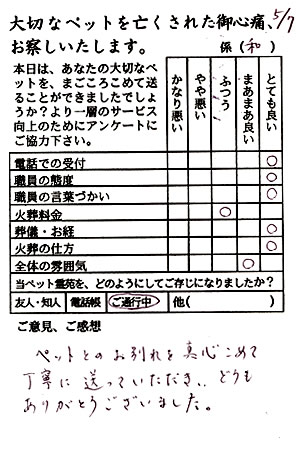 大切なペットを亡くされた御心痛、5/7
お察しいたします。 係（和）
本日は、あなたの大切なペッ
トを、まごころこめて送
ることができましたでしょ
うか？より一層のサービス
向上のためにアンケートに
ご協力下さい。
かなり悪い
やや悪い
ふつう
まあまあ良い
とても良い
電話での受付 ○
職員の態度 ○
職員の言葉づかい ○
火葬料金 ○
葬儀・お経 ○
火葬の仕方 ○
全体の雰囲気 ○
当ペット霊苑を、どのようにしてご存じになりましたか？
友人・知人 電話帳 ご通行中 他( )
ご意見、ご感想
ペットとのお別れを真心こめて
丁寧に送っていただき、どうも
ありがとうございました。